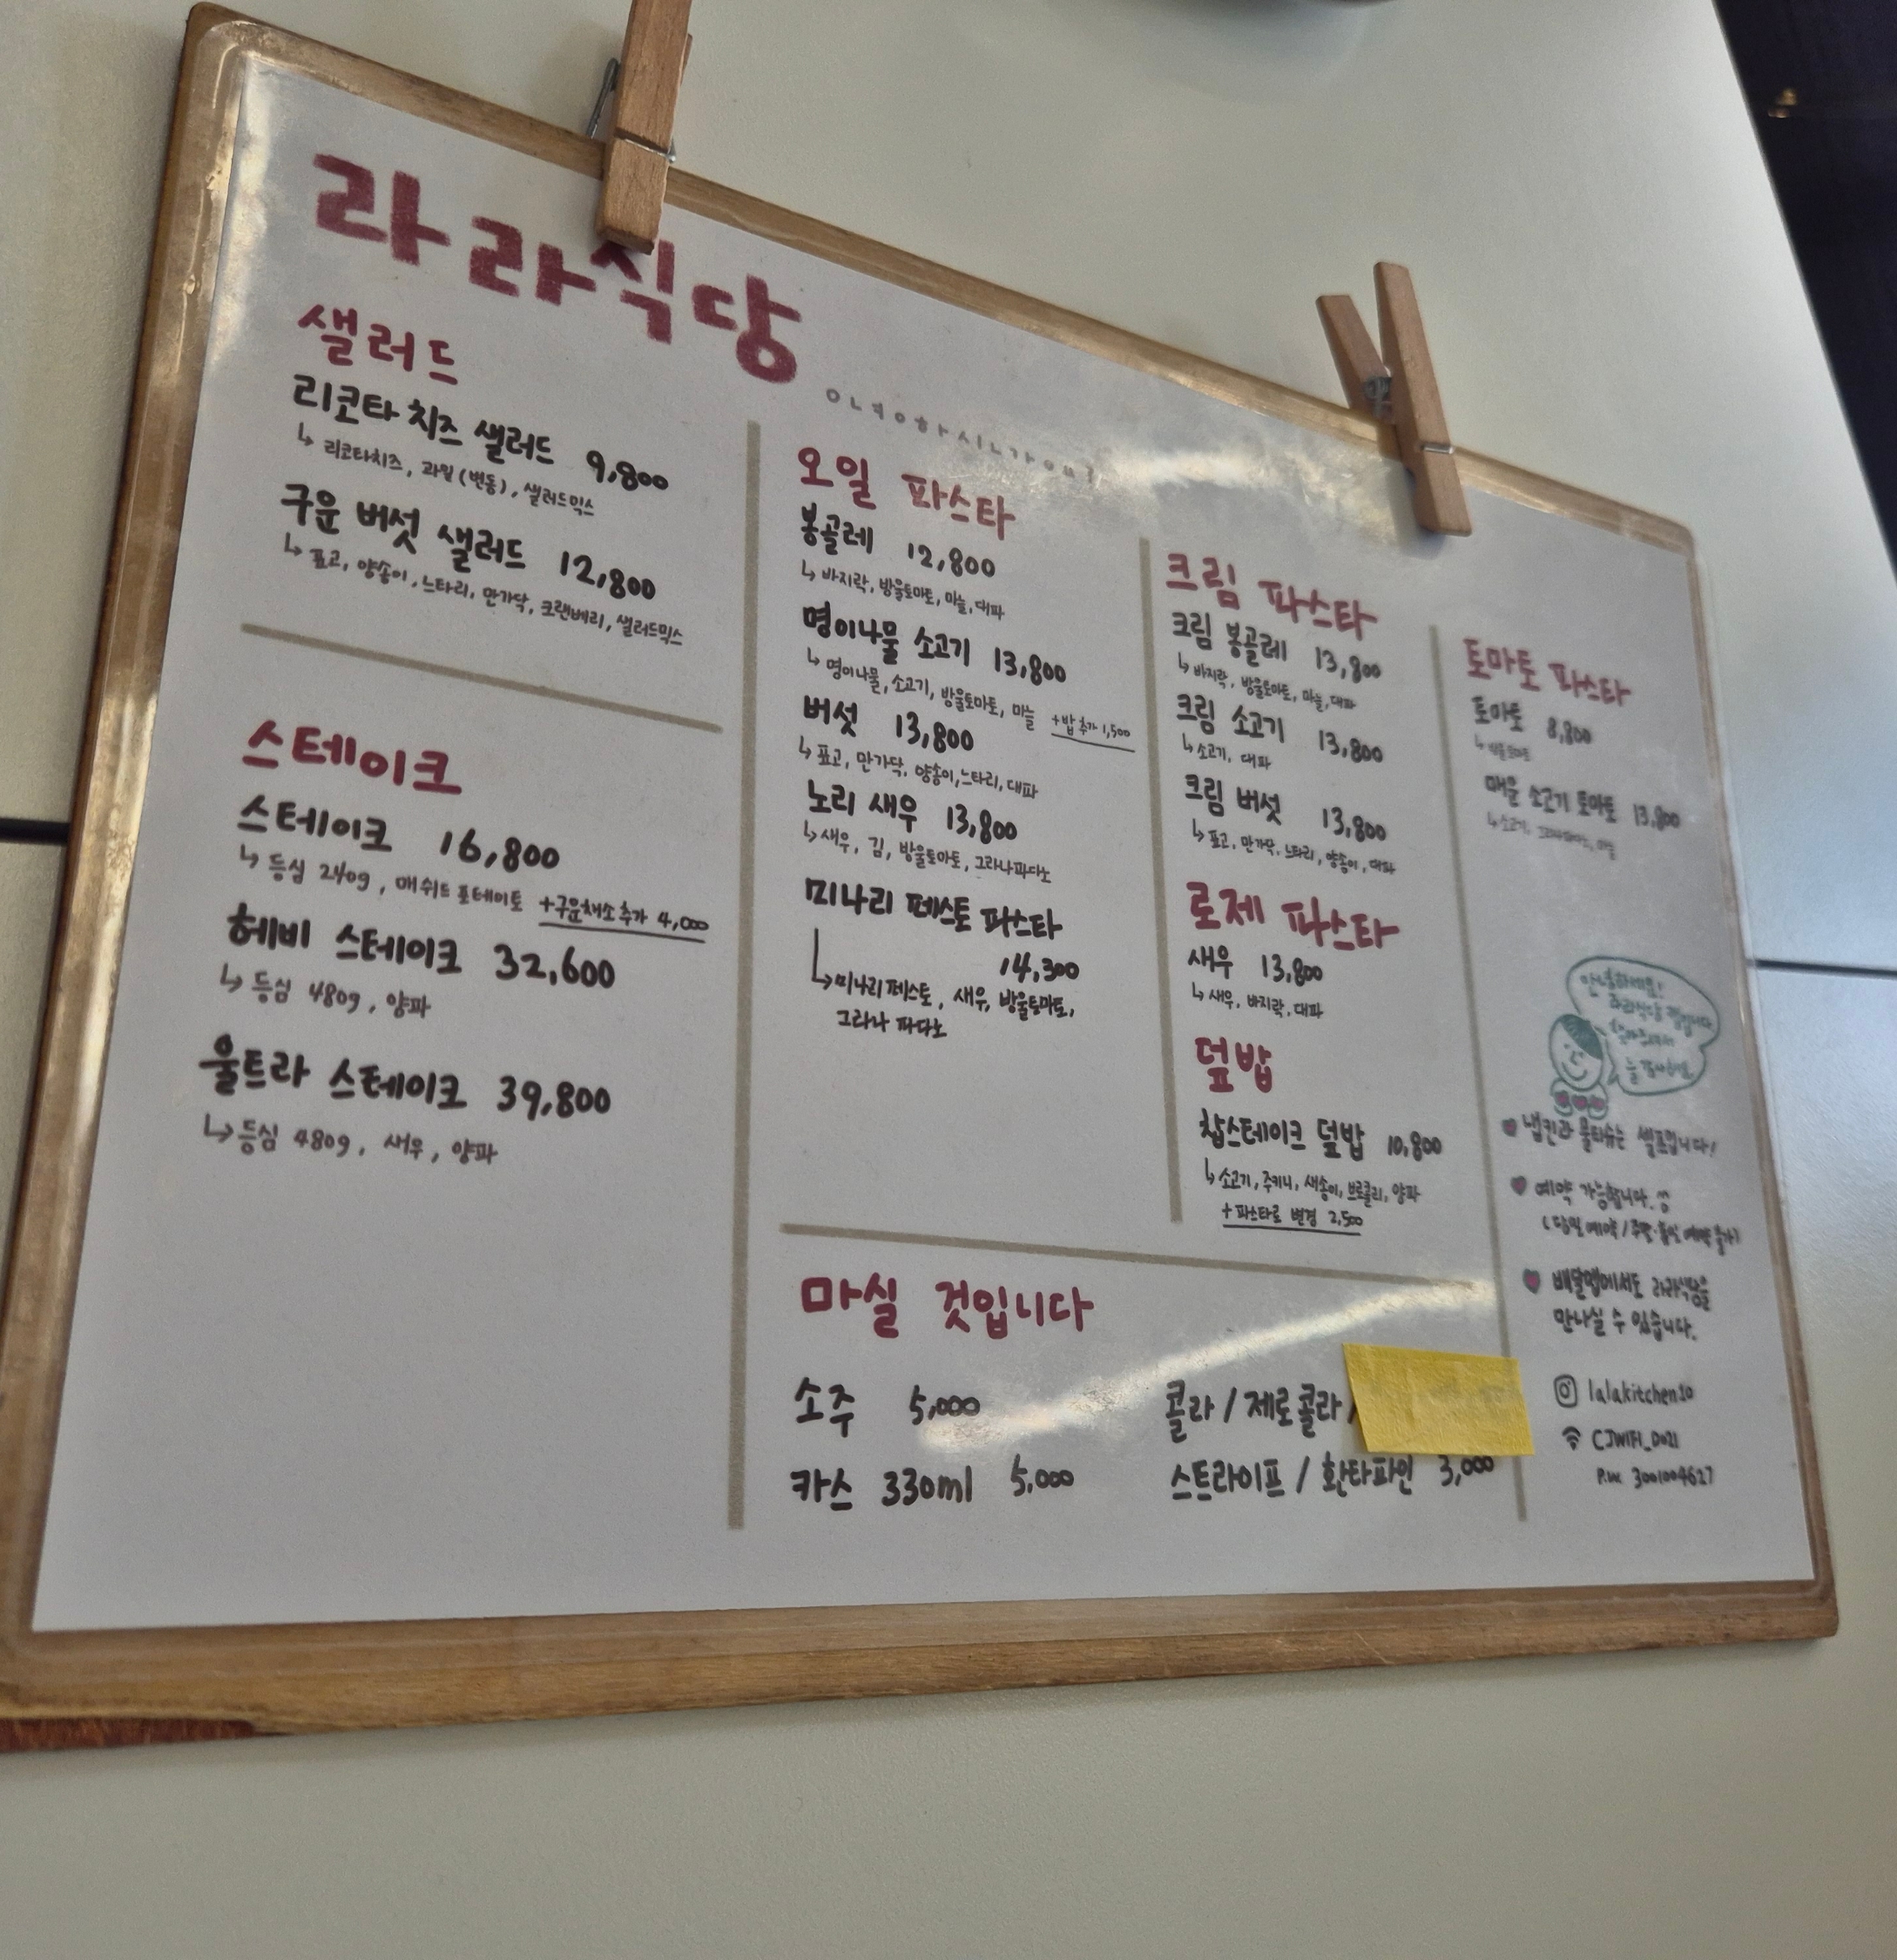 라라식당
샐러드
리코타 치즈 샐러드 9,800
↳ 리코타치즈, 과일(변동), 샐러드믹스
구운 버섯 샐러드 12,800
↳ 표고, 양송이, 느타리, 만가닥, 크랜베리, 샐러드믹스
스테이크
스테이크 16,800
↳ 등심 240g, 매쉬드 포테이토 +구운채소 추가 4,000
헤비 스테이크 32,600
↳ 등심 480g, 양파
울트라 스테이크 39,800
↳ 등심 480g, 새우, 양파
오일 파스타
봉골레 12,800
↳ 바지락, 방울토마토, 마늘, 대파
명이나물 소고기 13,800
↳ 명이나물, 소고기, 방울토마토, 마늘 +밥 추가 1,500
버섯 13,800
↳ 표고, 만가닥, 양송이, 느타리, 대파
노리 새우 13,800
↳ 새우, 김, 방울토마토, 그라나파다노
미나리 페스토 파스타
14,300
↳ 미나리 페스토, 새우, 방울토마토,
그라나 파다노
크림 파스타
크림 봉골레 13,800
↳ 바지락, 방울토마토, 마늘, 대파
크림 소고기 13,800
↳ 소고기, 대파
크림 버섯 13,800
↳ 표고, 만가닥, 느타리, 양송이, 대파
로제 파스타
새우 13,800
↳ 새우, 바지락, 대파
덮밥
찹스테이크 덮밥 10,800
↳ 소고기, 주키니, 새송이, 브로콜리, 양파
+ 파스타로 변경 2,500
토마토 파스타
토마토 8,800
매운 소고기 토마토 13,800
안녕하세요!
라라식당 입니다
냅킨과 물티슈는 셀프입니다!
예약 가능합니다.
배달앱에서도 라라식당을
만나실 수 있습니다.
lalakitchen10
CJWIFI_D021
P.W. 3001004627
마실 것입니다
소주 5,000
카스 330ml 5,000
콜라 / 제로콜라 /
스트라이프 / 환타파인 3,000